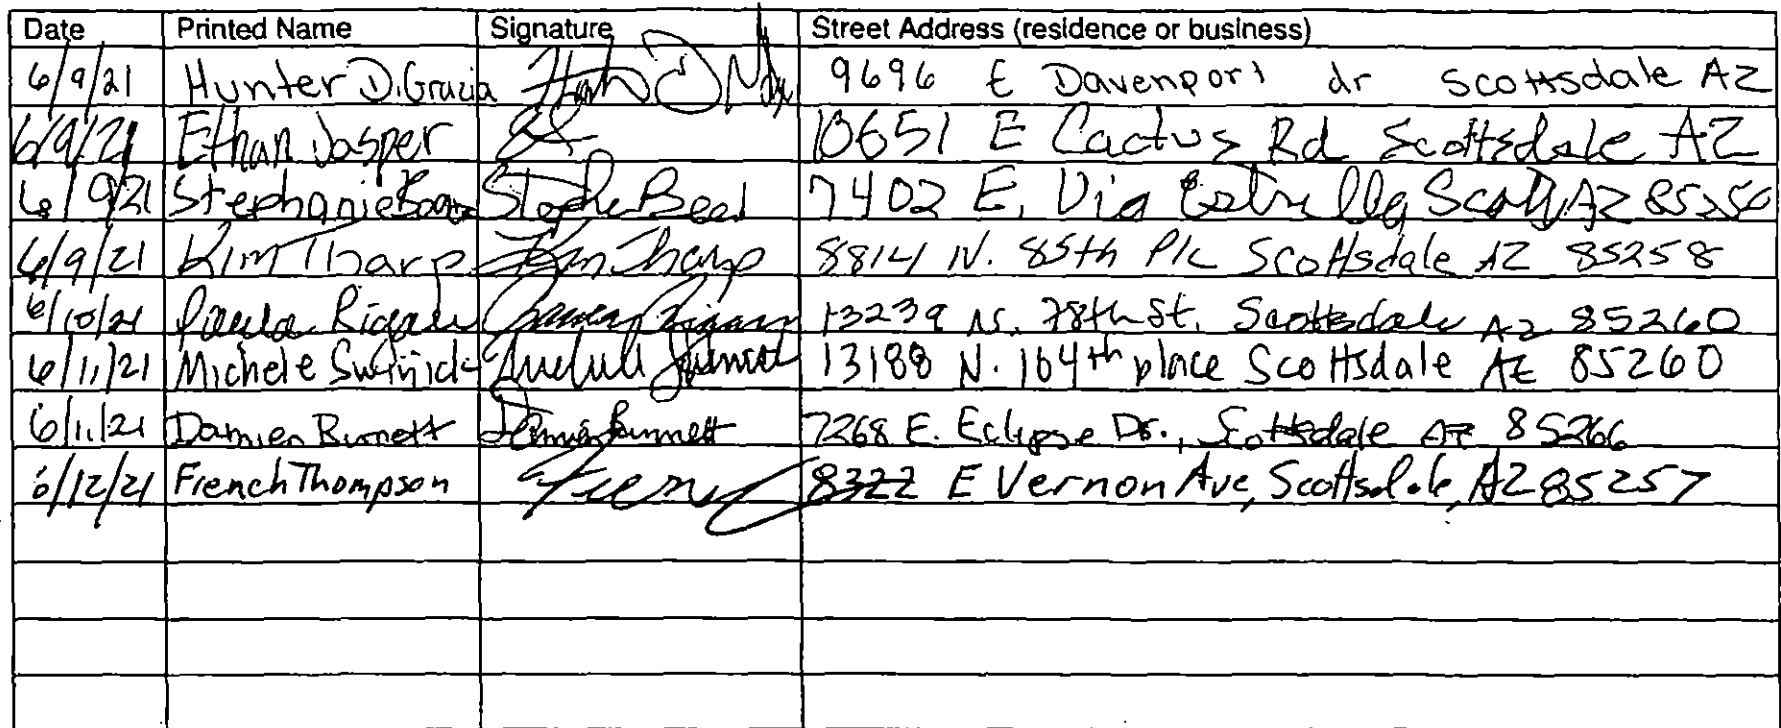 Date Printed Name Signature Street Address (residence or business)
6/9/21 Hunter DiGrazia 9696 E Davenport dr Scottsdale AZ
6/9/21 Ethan Jasper 10651 E Cactus Rd Scottsdale AZ
6/9/21 Stephanie 7402 E. Via Estrella Scott AZ 85258
6/9/21 Kim Tharp Kim Tharp 8814 N. 85th Plc Scottsdale AZ 85258
6/10/21 Paula 13239 N. 78th St. Scottsdale AZ 85260
6/11/21 Michele 13188 N. 104th place Scottsdale AZ 85260
6/11/21 Damien Burnett Damien Burnett 7268 E. Eclipse Dr., Scottsdale AZ 85266
6/12/21 French Thompson French 8322 E Vernon Ave, Scottsdale, AZ 85257